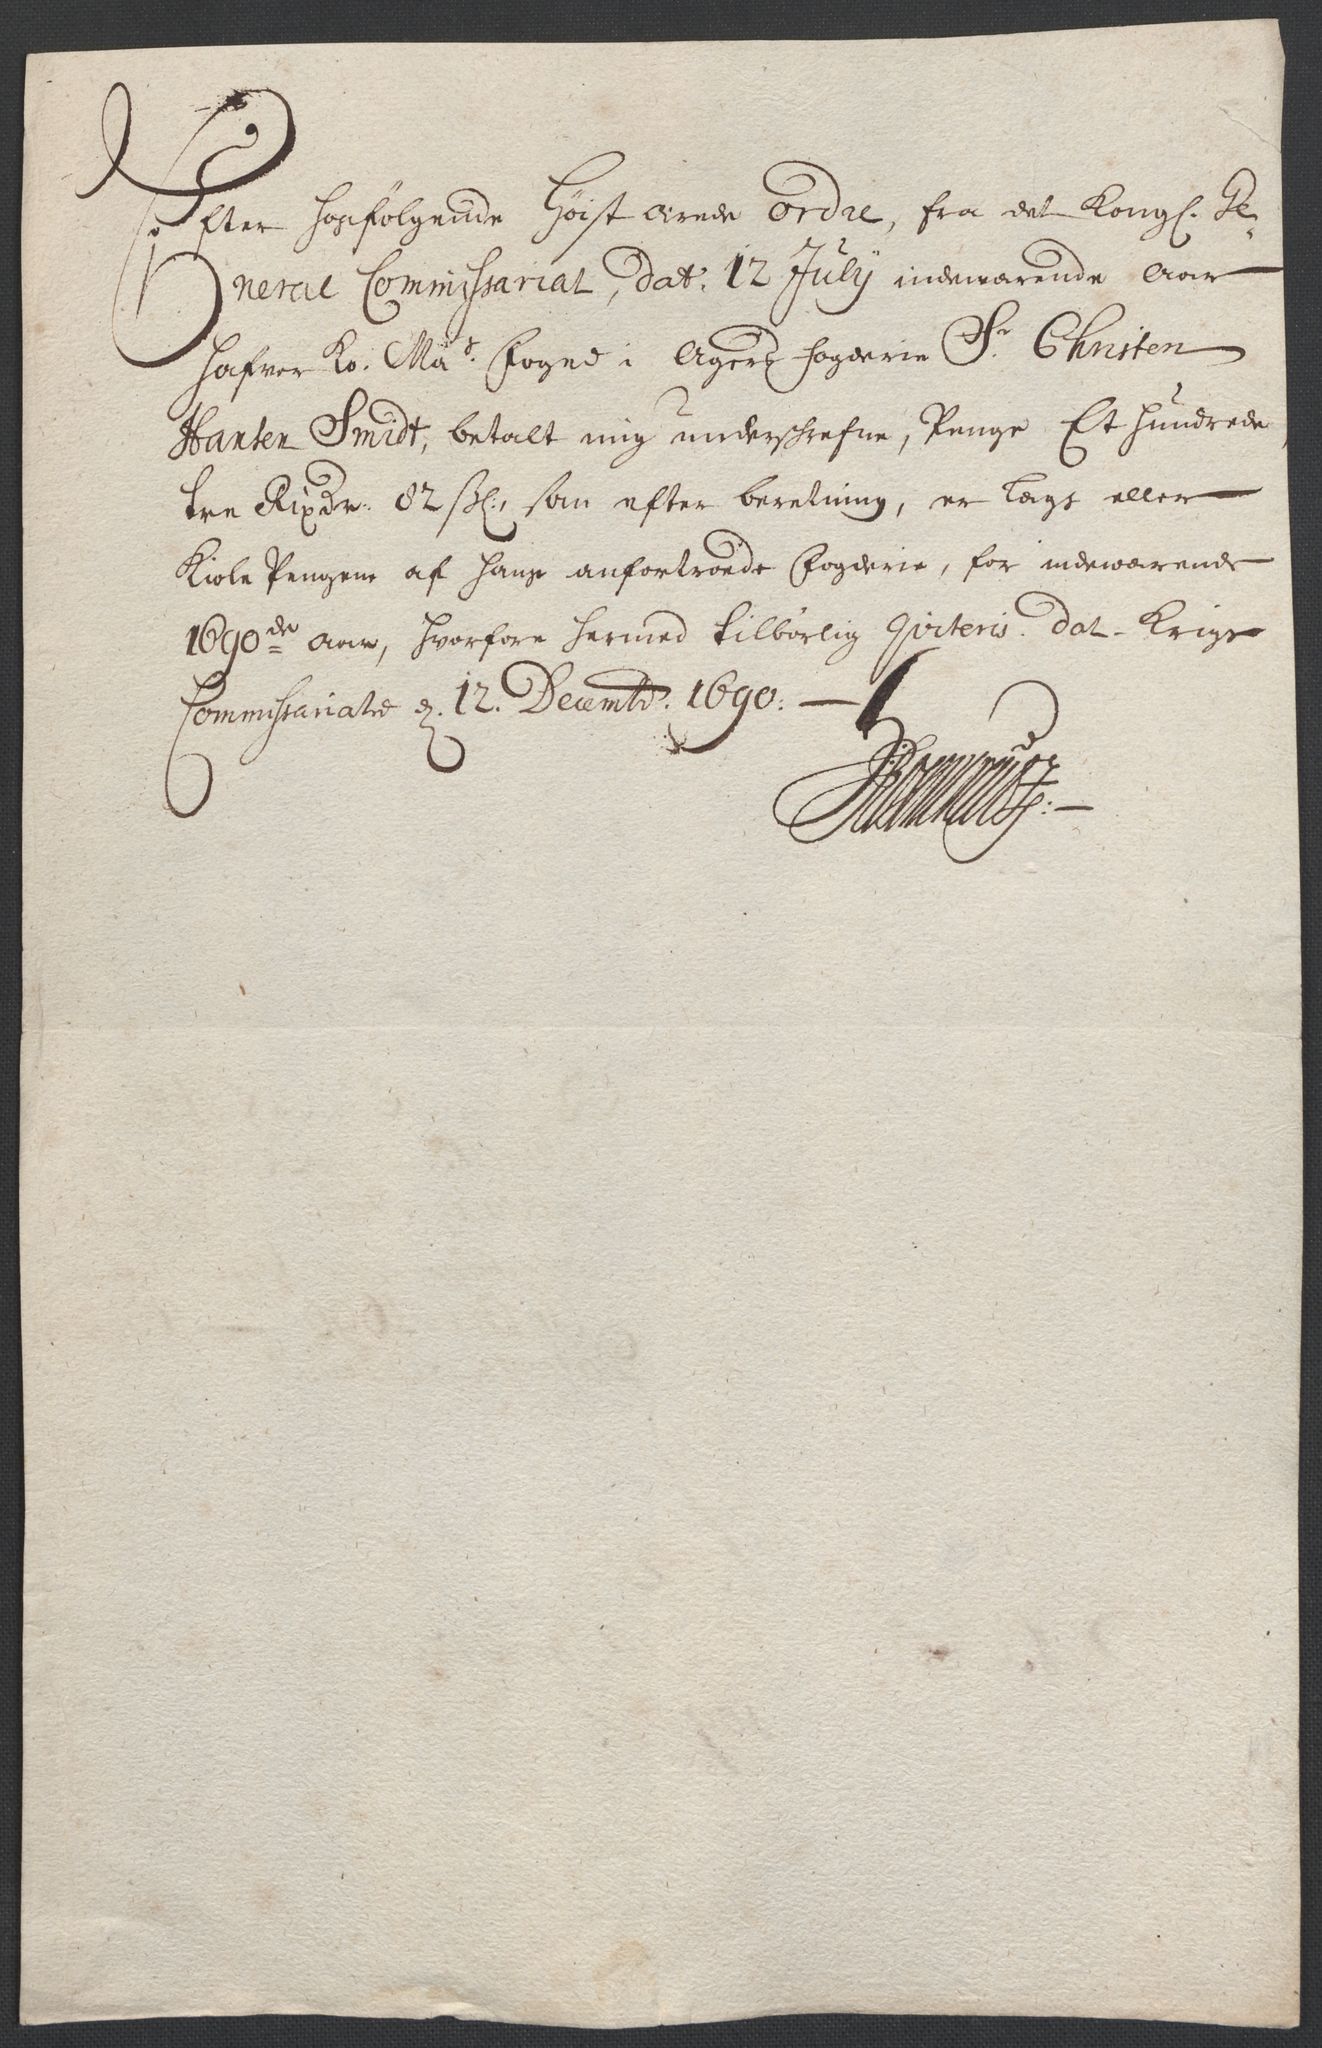 Efter hosfølgende Høist ærede Ordre, fra det Kongl. Ge-
neral Commissariat, dat: 12 July indewærende Aar
hafver Ko: Ma:ts Foged i Agers fogderie Sr Christen
Hansen Smidt, betalt mig underschrefne, Penge Et hundrede
tre Rixdr: 82 sk:, som efter beretning, er Lægs eller
Kiole Pengene af hans anfortroede Fogderie, for indewærende
1690de Aar, hvorfore hermed tilbørlig Qviteris. Dat- Krigs
Commissariatet d. 12. Decembr: 1690: